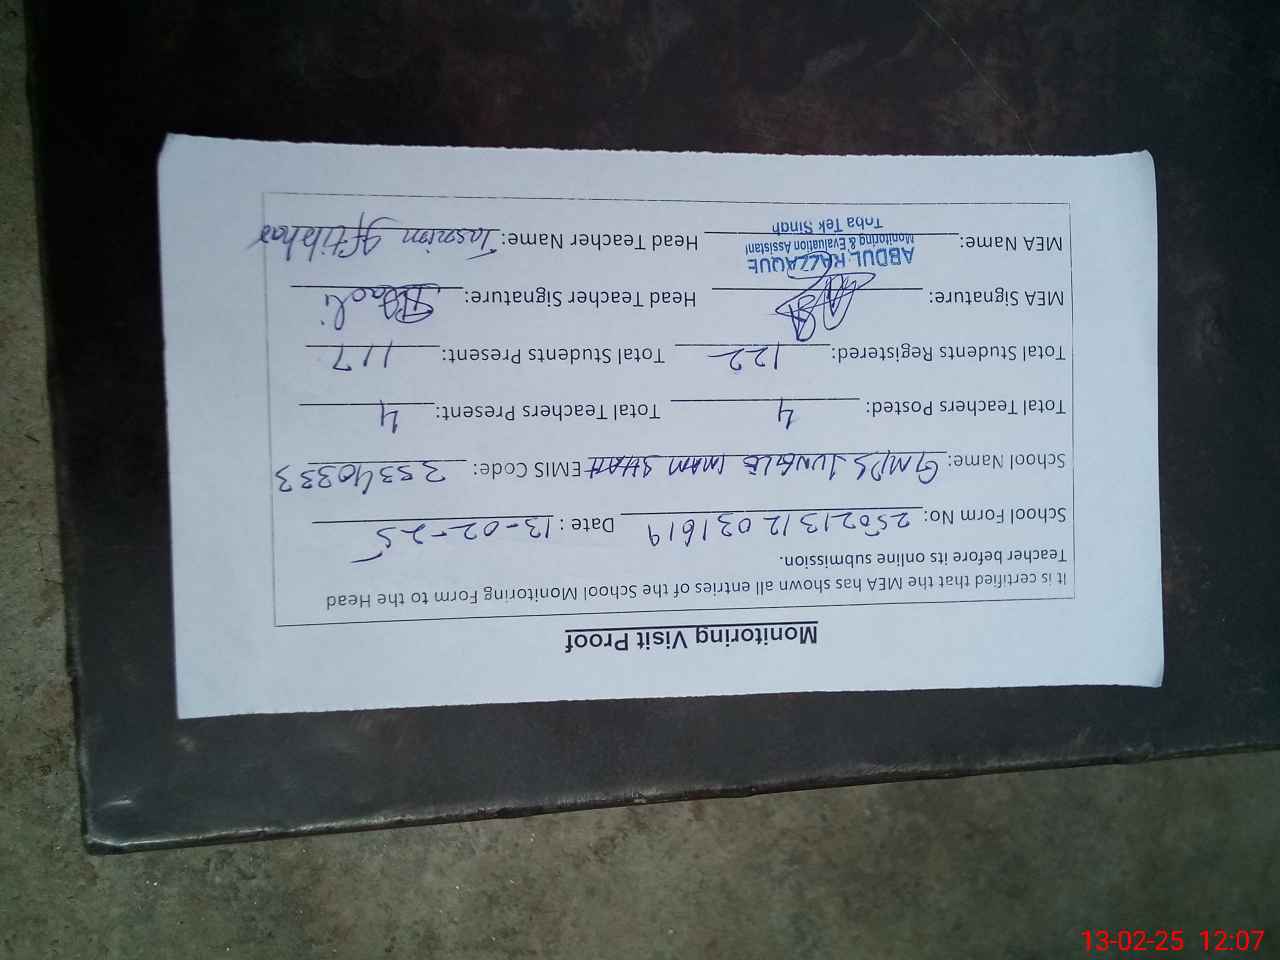 Monitoring Visit Proof
It is certified that the MEA has shown all entries of the School Monitoring Form to the Head
Teacher before its online submission.
School Form No: 25021312031619 Date : 13-02-25
School Name: GMPS JUNGLE IMAM SHAH EMIS Code: 33340333
Total Teachers Posted: 4 Total Teachers Present: 4
Total Students Registered: 122 Total Students Present: 117
MEA Signature: Head Teacher Signature:
ABDUL RAZZAQUE
Monitoring & Evaluation Assistant
Toba Tek Singh
MEA Name: Head Teacher Name: Iftikhar
13-02-25 12:07